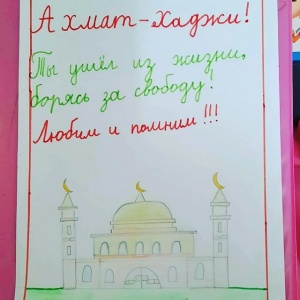 Ахмат-Хаджи!
Ты ушёл из жизни,
борясь за свободу!
Любим и помним!!!